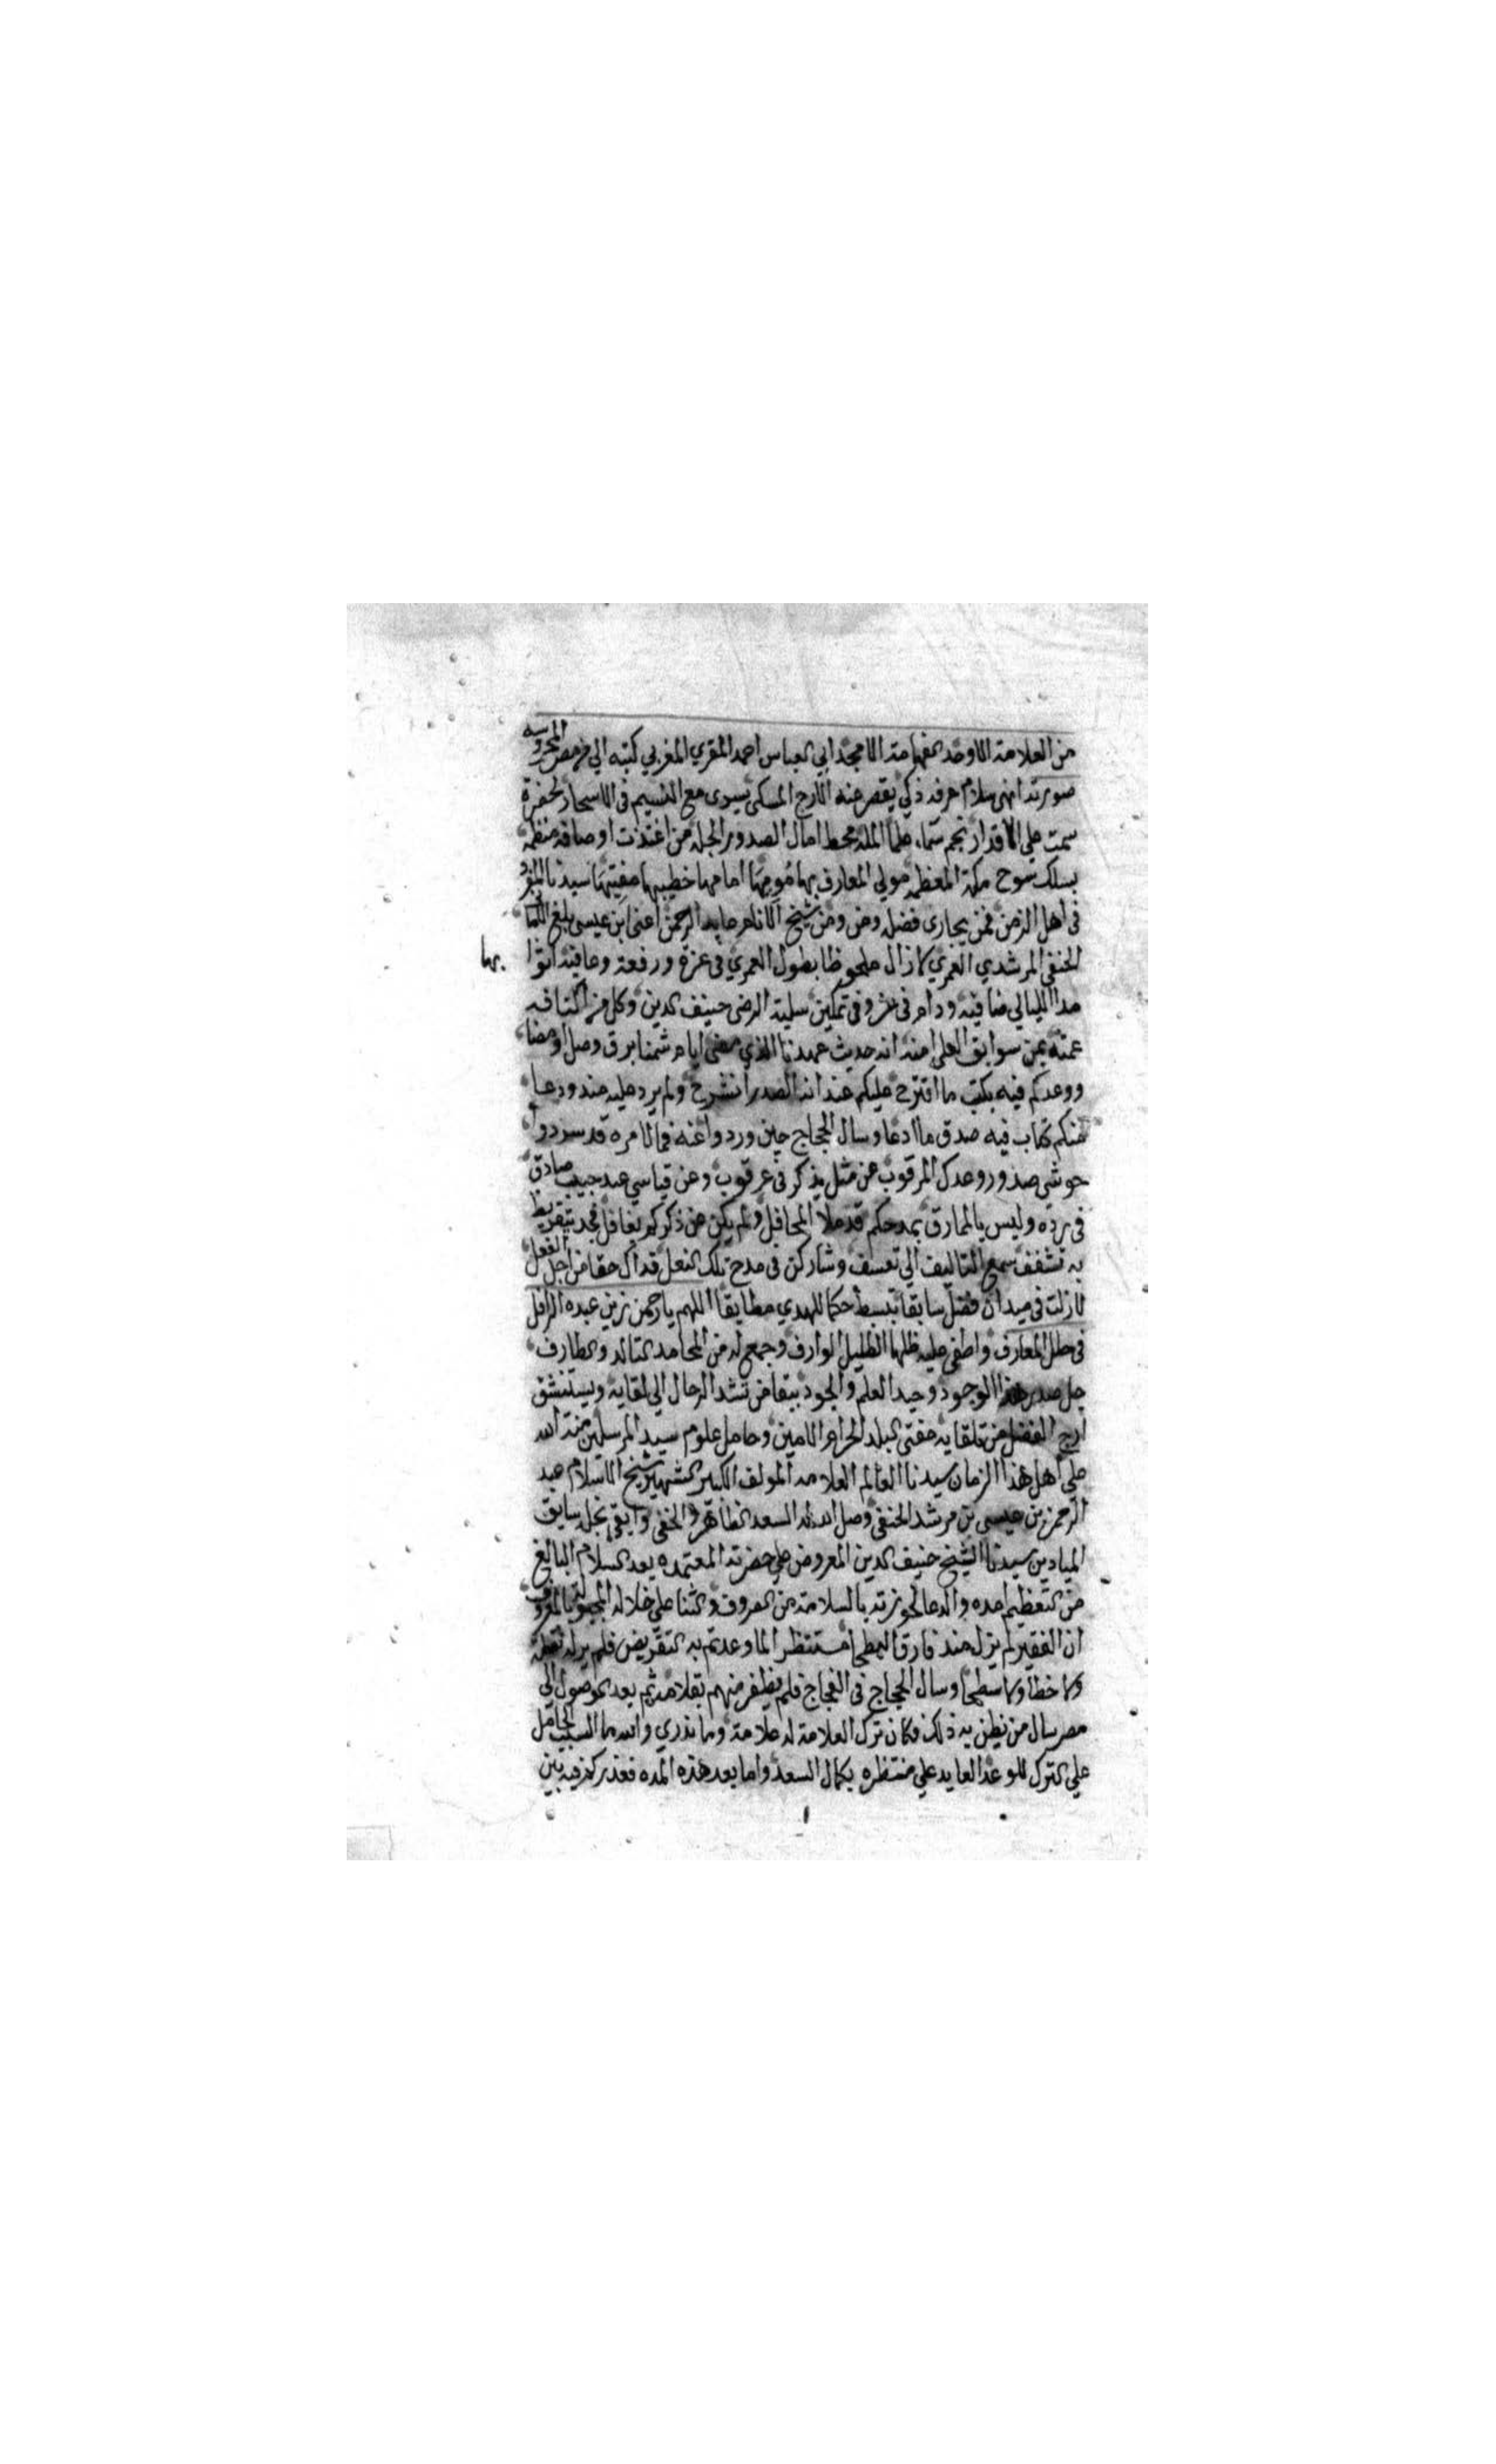 من العلامة الاوحد الفهامة الامجد ابي العباس احمد المقري المغربي كتبه الي من مصر المحروسه
صورته انهى سلام عرفه ذكي يقصر عنه الارج المسكي يسري مع النسيم فى الاسحار لحضرة
سمت علي الاقدار نجم سماء علما المله محط امال الصدور الجله من اغتذت اوصافه منظمه
بسلك سوح مكة المعظمه مولي المعارف بها مومها امامها خطيبها مفيتها سيدنا المفرد
فى اهل الزمن فمن يجارى فضله ومن ومن شيخ الانام عابد الرحمن اعنى ابن عيسى بلغ الامانى
الحنفي المرشدي العمري لا زال ملحوظا بطول العمري فى عزة ورفعة وعافيه
بها
مدا الليالي ضافيه ودام فى عز وفى تمكين سليله الرضى حنيف الدين وكل من اكنافه
عمته بمن سوابق العلى منه انه حديث عهدنا الذي مضى ايام شمنا برق وصل اومضا
ووعدكم فيه بكتب ما اقترح عليكم عند انه الصدر انشرح ولم يرد عليه منه ودعا
منكم كتاب فيه صدق ما ادعا وسال الحجاج حين وردوا عنه فما لامره قد سردوا
حوشي صدور وعدك المرقوب عن مثل يذكر فى عرقوب وعن قياسي عند حبيب صادق
فى برده وليس بالمارق بمدحكم قد ملا المحافل ولم يكن عن ذكركم بغافل فجد بتقريظ
به تشفف سمع التاليف الي تعسف وشاركن فى مدح تلك النعل فذاك حقا من اجل الفعل
لازلت فى ميدان فضل سابقا تبسط حكما للهدي مطابقا اللهم يا رحمن زين عبده الرافل
فى حلل المعارف واضفى عليه ظلها الظليل الوارف وجمع له من المحامد التالد والطارف
جل صدر هذا الوجود وحيد العلم والجود ببقا من تشد الرحال الي لقايه ويستنشق
ارج الفضل من تلقايه مفتى البلد الحرام الامين وحامل علوم سيد المرسلين منة الله
علي اهل هذا الزمان سيدنا العالم العلامه المولف الكبير الشهير شيخ الاسلام عبد
الرحمن بن عيسى بن مرشد الحنفى وصل الله له السعد الظاهر والخفى وابقى نجله سابق
الميادين سيدنا الشيخ حنيف الدين المعروض علي حضرته المعتمده بعد السلام البالغ
من التعظيم امده والدعا لحوزته بالسلامة من الصروف والثنا علي خلاله المجبولة بالمعروف
ان الفقير لم يزل منذ فارق البطحا مستنظرا لما وعدتم به التقريض فلم ير له نقطة
ولا خطا ولا سطحا وسال الحجاج فى الفجاج فلم يظفر منهم بقلامه ثم بعد الوصول الي
مصر سال من يظن به ذلك فكان ترك العلامة له علامة وما ندري والله ما السبب الحامل
علي الترك للوعد العايد علي منتظره بكمال السعد واما بعد هذه المده فعذركم فيه بين